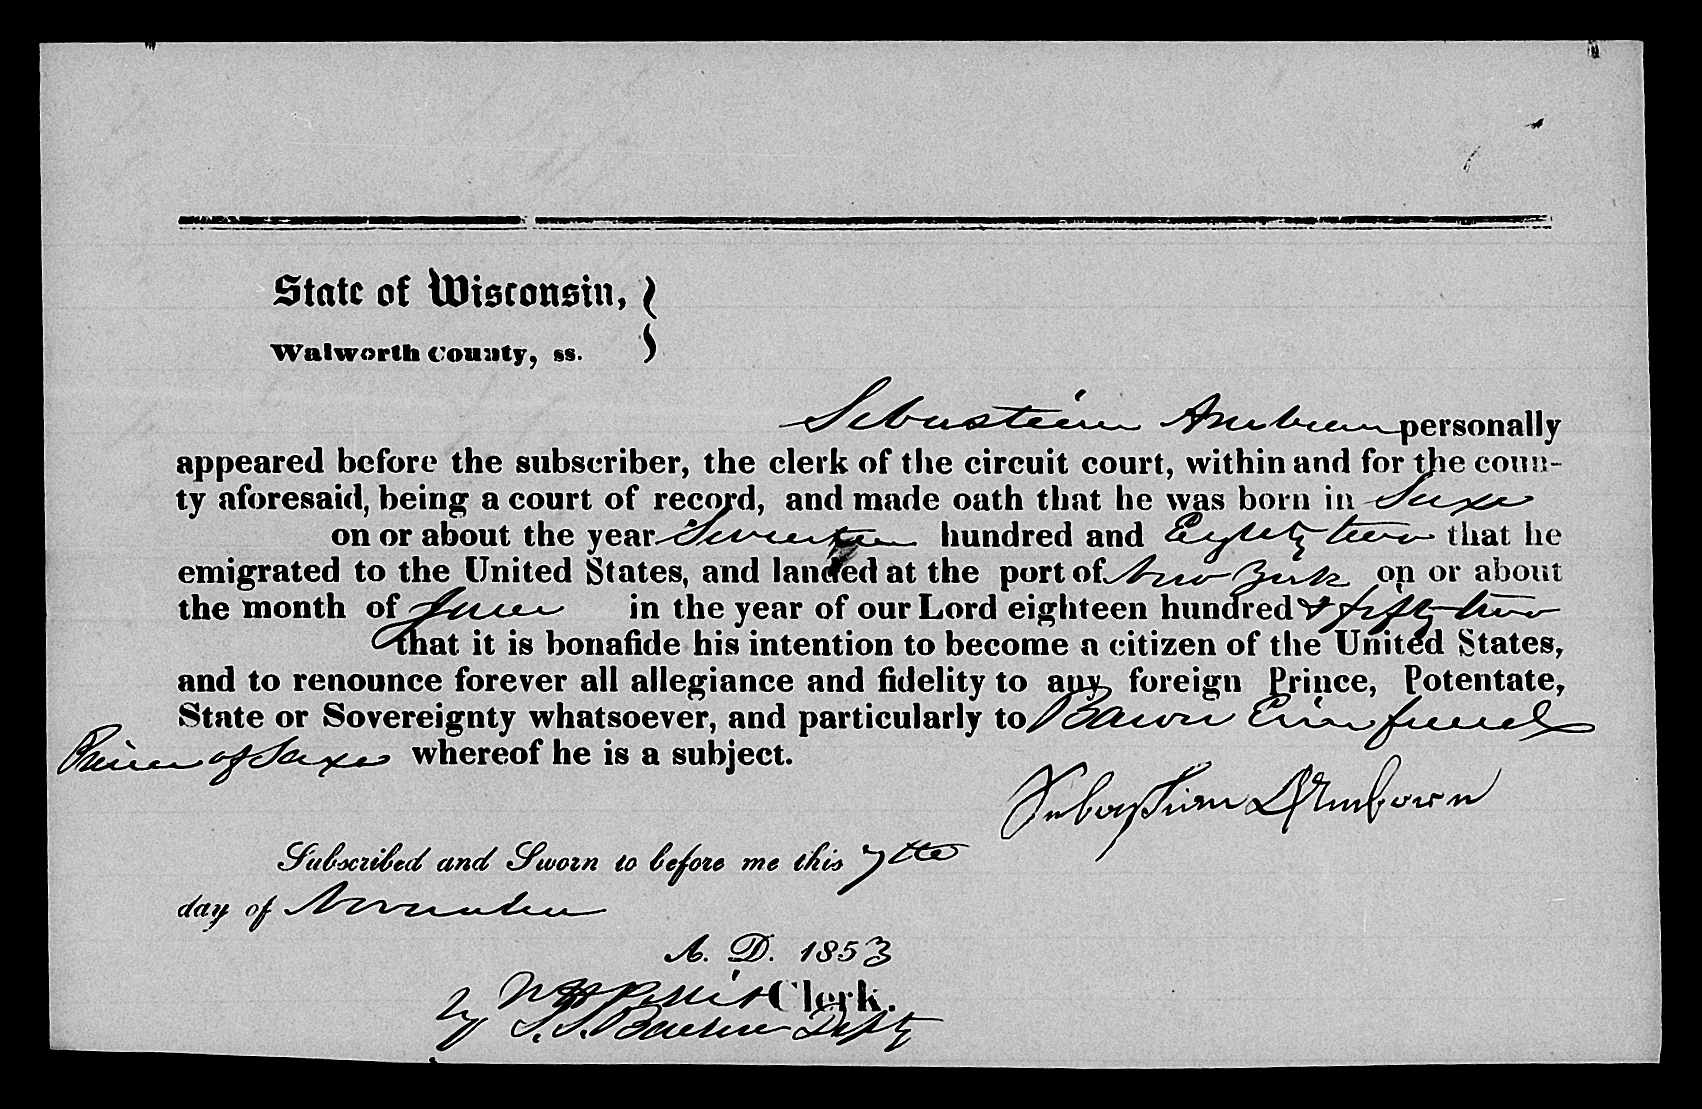 State of Wisconsin,
Walworth County, ss.
Sebastian Ambrun personally
appeared before the subscriber, the clerk of the circuit court, within and for the coun-
ty aforesaid, being a court of record, and made oath that he was born in Saxe
on or about the year Seventeen hundred and Eighty two that he
emigrated to the United States, and landed at the port of New York on or about
the month of June in the year of our Lord eighteen hundred & fifty two
that it is bonafide his intention to become a citizen of the United States,
and to renounce forever all allegiance and fidelity to any foreign Prince, Potentate,
State or Sovereignty whatsoever, and particularly to Baron
Prince of Saxe whereof he is a subject.
Sebastian
Subscribed and Sworn to before me this 7th
day of November
A. D. 1853
Clerk.
by Depty